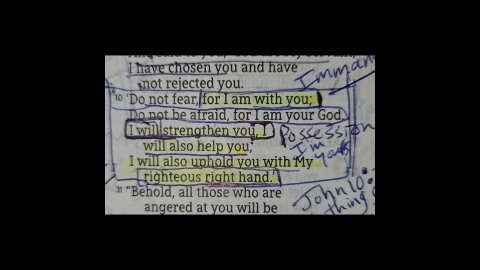 I have chosen you and have
not rejected you.
10 'Do not fear, for I am with you;
Do not be afraid, for I am your God.
I will strengthen you,
will also help you,
I will also uphold you with My
righteous right hand.'
31 "Behold, all those who are
angered at you will be
Imman
Possession
I'm
yours
John 10:
thing